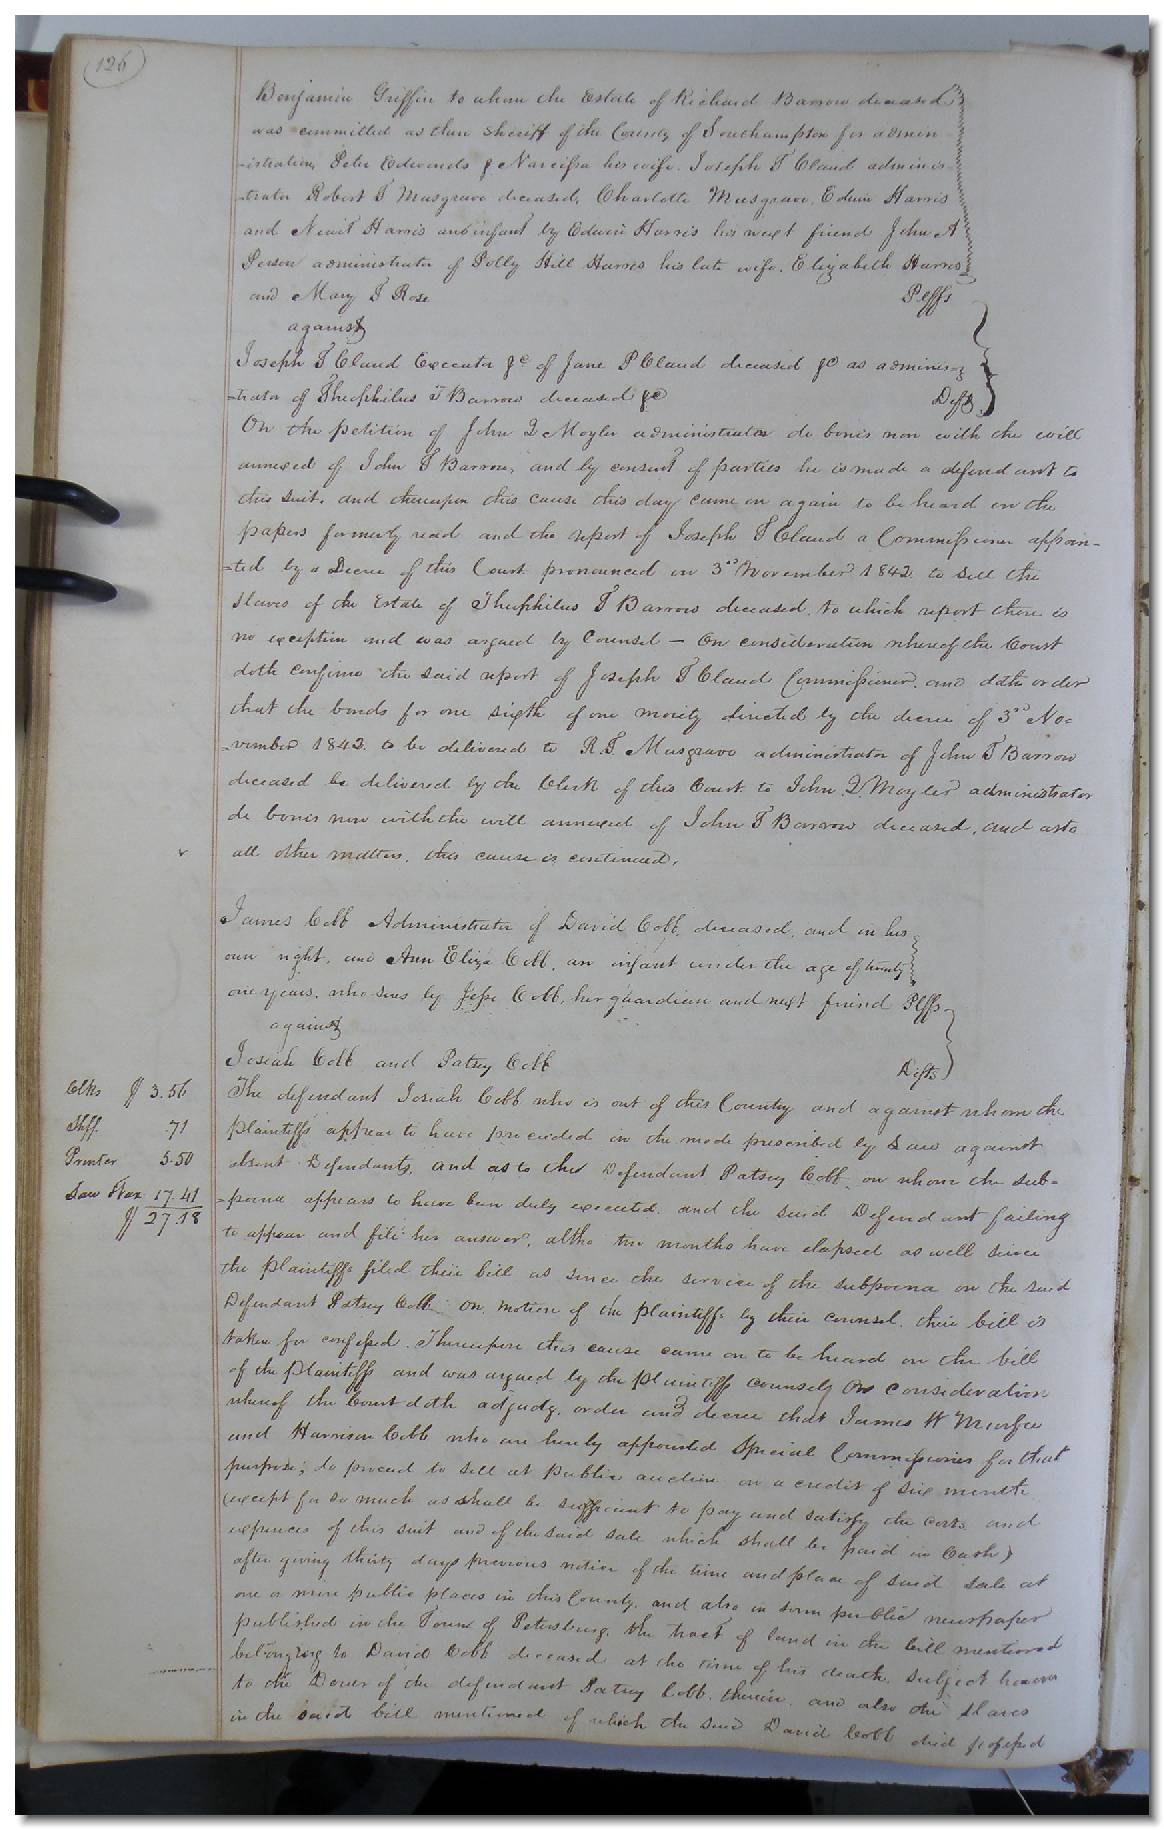 126
Benjamin Griffin to whom the Estate of Richard Barrow deceased
was committed as then Sheriff of the County of Southampton for admin
-istration, Peter Edwards & Narcissa his wife. Joseph T Claud adminis-
-trator Robert T Musgrave deceased, Charlotte Musgrave, Edwin Harris
and Newit Harris an infant by Edwin Harris his next friend John A
Person administrator of Polly Hill Harris his late wife, Elizabeth Harris
and Mary T Rose Plffs
against
Joseph T Claud Executor &c of Jane P Claud deceased &c as adminis-
-trator of Theophilus T Barrow deceased &c Defts
On the petition of John Q Moyler administrator de bonis non with the will
annexed of John T Barrow, and by consent of parties he is made a defendant to
this suit. and thereupon this cause this day came on again to be heard on the
papers formerly read and the report of Joseph T Claud a Commissioner appoin-
-ted by a Decree of this Court pronounced on 3rd November 1842. to sell the
slaves of the Estate of Theophilus T Barrow deceased. to which report there is
no exception and was argued by Counsel – On consideration whereof the Court
doth confirm the said report of Joseph T Claud Commissioner. and doth order
that the bonds for one sixth of one moiety directed by the decree of 3rd No-
-vember 1842. to be delivered to R.T. Musgrave administrator of John T Barrow
deceased be delivered by the Clerk of this Court to John Q Moyler administrator
de bonis non with the will annexed of John T Barrow deceased, and as to
all other matters, this cause is continued.
James Cobb Administrator of David Cobb, deceased, and in his
own right, and Ann Eliza Cobb, an infant under the age of twenty
one years. who sues by Jesse Cobb, her guardian and next friend Plffs
against
Josiah Cobb and Patsey Cobb Defts
Clks $ 3.56
Shff. .71
Printer 5.50
Law & tax 17.41
$ 27.18
The defendant Josiah Cobb who is out of this Country and against whom the
plaintiffs appear to have proceeded in the mode prescribed by Law against
absent Defendants, and as to the Defendant Patsey Cobb, on whom the sub-
-poena appears to have been duly executed. and the said Defendant failing
to appear and file her answer, altho two months have elapsed as well since
the plaintiffs filed their bill as since the service of the subpoena on the said
Defendant Patsey Cobb: On motion of the plaintiffs by their counsel. their bill is
taken for confessed. Thereupon this cause came on to be heard on the bill
of the plaintiffs and was argued by the plaintiffs counsel, On consideration
whereof the Court doth adjudge, order and decree that James W Murfee
and Harrison Cobb who are hereby appointed Special Commissioners for that
purpose; do proceed to sell at public auction on a credit of six months
(except for so much as shall be sufficient to pay and satisfy the costs and
expences of this suit and of the said sale which shall be paid in Cash)
after giving thirty days previous notice of the time and place of said sale at
one or more public places in this County, and also in some public newspaper
published in the Town of Petersburg, the tract of land in the bill mentioned
belonging to David Cobb deceased at the time of his death. subject however
to the Dower of the defendant Patsey Cobb. therein. and also the slaves
in the said bill mentioned of which the said David Cobb died possessed